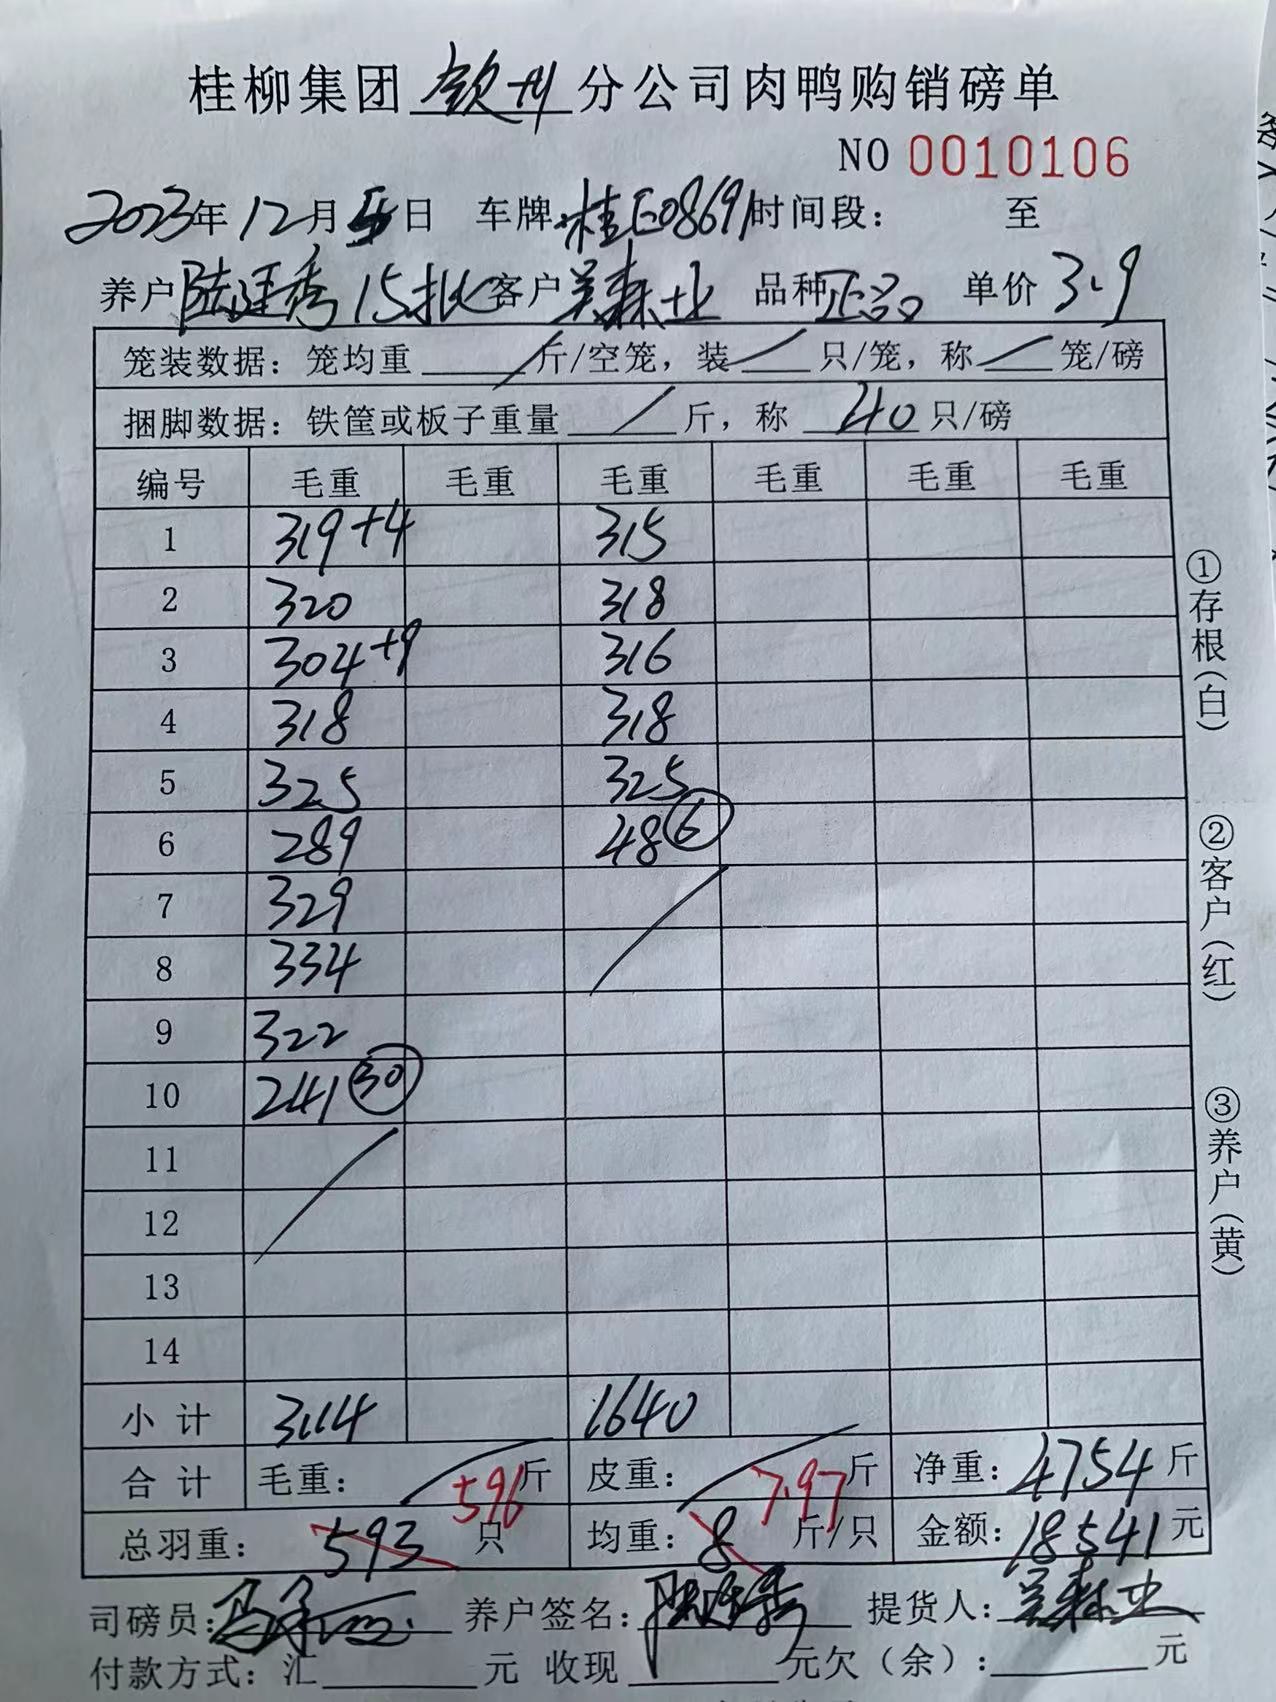 桂柳集团 钦州 分公司肉鸭购销磅单
NO 0010106
2023年12月5日 车牌:桂E08691时间段: 至
养户陆廷秀15批客户吴森业 品种正品 单价3.9
笼装数据:笼均重 / 斤/空笼,装 / 只/笼,称 / 笼/磅
捆脚数据:铁筐或板子重量 / 斤,称 40 只/磅
编号 毛重 毛重 毛重 毛重 毛重 毛重
1 319+4 315
2 320 318
3 304+9 316
4 318 318
5 325 325
6 289 48⑥
7 329
8 334
9 322
10 241㉚
11
12
13
14
小 计 3114 1640
合 计 毛重: 斤 皮重: 斤 净重:4754斤
596 7.97
总羽重: 593 只 均重: 8 斤/只 金额:18541元
司磅员: 养户签名:陆廷秀 提货人:吴森业
付款方式:汇 元 收现 元欠(余): 元
①存根(白)
②客户(红)
③养户(黄)